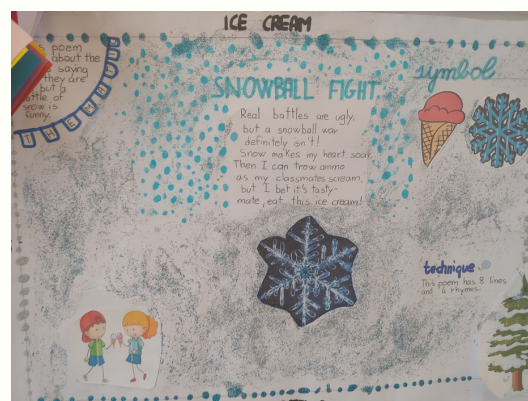 ICE CREAM
poem
about the
saying
they are
but a
battle of
snow is
funny.
SNOWBALL FIGHT
Real battles are ugly,
but a snowball war
definitely isn't!
Snow makes my heart soar.
Then I can trow ammo
as my classmates scream,
but I bet it's tasty-
mate, eat this ice cream!
symbol
technique
This poem has 8 lines
and 4 rhymes.